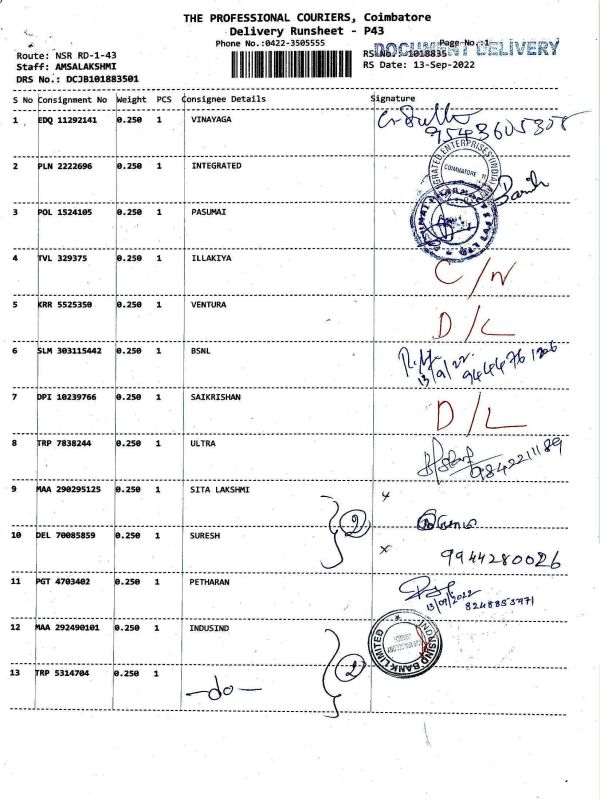 THE PROFESSIONAL COURIERS, Coimbatore
Delivery Runsheet - P43
Phone No.:0422-3505555
Page No.:1
DOCUMENT DELIVERY
Route: NSR RD-1-43
RS No.: 1018835
Staff: AMSALAKSHMI
RS Date: 13-Sep-2022
DRS No.: DCJB101883501
S No Consignment No Weight PCS Consignee Details Signature
1 EDQ 11292141 0.250 1 VINAYAGA
9543605308
2 PLN 2222696 0.250 1 INTEGRATED
COIMBATORE
3 POL 1524105 0.250 1 PASUMAI
4 TVL 329375 0.250 1 ILLAKIYA C/N
5 KRR 5525350 0.250 1 VENTURA D/L
6 SLM 303115442 0.250 1 BSNL
13/9/22
7 DPI 10239766 0.250 1 SAIKRISHAN D/L
8 TRP 7838244 0.250 1 ULTRA
9842211189
9 MAA 290295125 0.250 1 SITA LAKSHMI x
2
10 DEL 70085859 0.250 1 SURESH x 9944280026
11 PGT 4703402 0.250 1 PETHARAN
13/09/2022
12 MAA 292490101 0.250 1 INDUSIND
INDUSIND BANK LIMITED
13 TRP 5314704 0.250 1 -do- 2